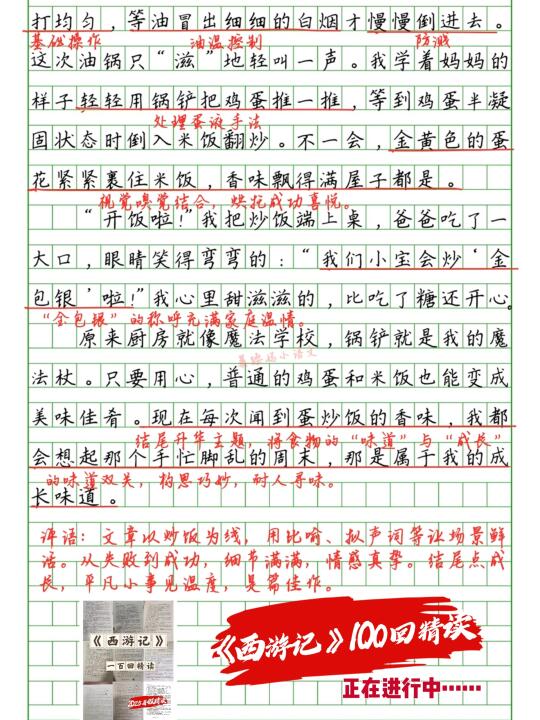 打均匀，等油冒出细细的白烟才慢慢倒进去。
基础操作 油温控制 防溅
这次油锅只“滋”地轻叫一声。我学着妈妈的
样子轻轻用锅铲把鸡蛋推一推，等到鸡蛋半凝
处理蛋液手法
固状态时倒入米饭翻炒。不一会，金黄色的蛋
花紧紧裹住米饭，香味飘得满屋子都是。
视觉嗅觉结合，烘托成功喜悦。
“开饭啦！”我把炒饭端上桌，爸爸吃了一
大口，眼睛笑得弯弯的：“我们小宝会炒‘金
包银’啦！”我心里甜滋滋的，比吃了糖还开心。
“金包银”的称呼充满家庭温情。
原来厨房就像魔法学校，锅铲就是我的魔
法杖。只要用心，普通的鸡蛋和米饭也能变成
美味佳肴。现在每次闻到蛋炒饭的香味，我都
结尾升华主题，将食物的“味道”与“成长”
会想起那个手忙脚乱的周末，那是属于我的成
的味道双关，构思巧妙，耐人寻味。
长味道。
评语：文章以炒饭为线，用比喻、拟声词等让场景鲜
活。从失败到成功，细节满满，情感真挚。结尾点成
长，平凡小事见温度，是篇佳作。
《西游记》
一百回精读
《西游记》100回精读
正在进行中……